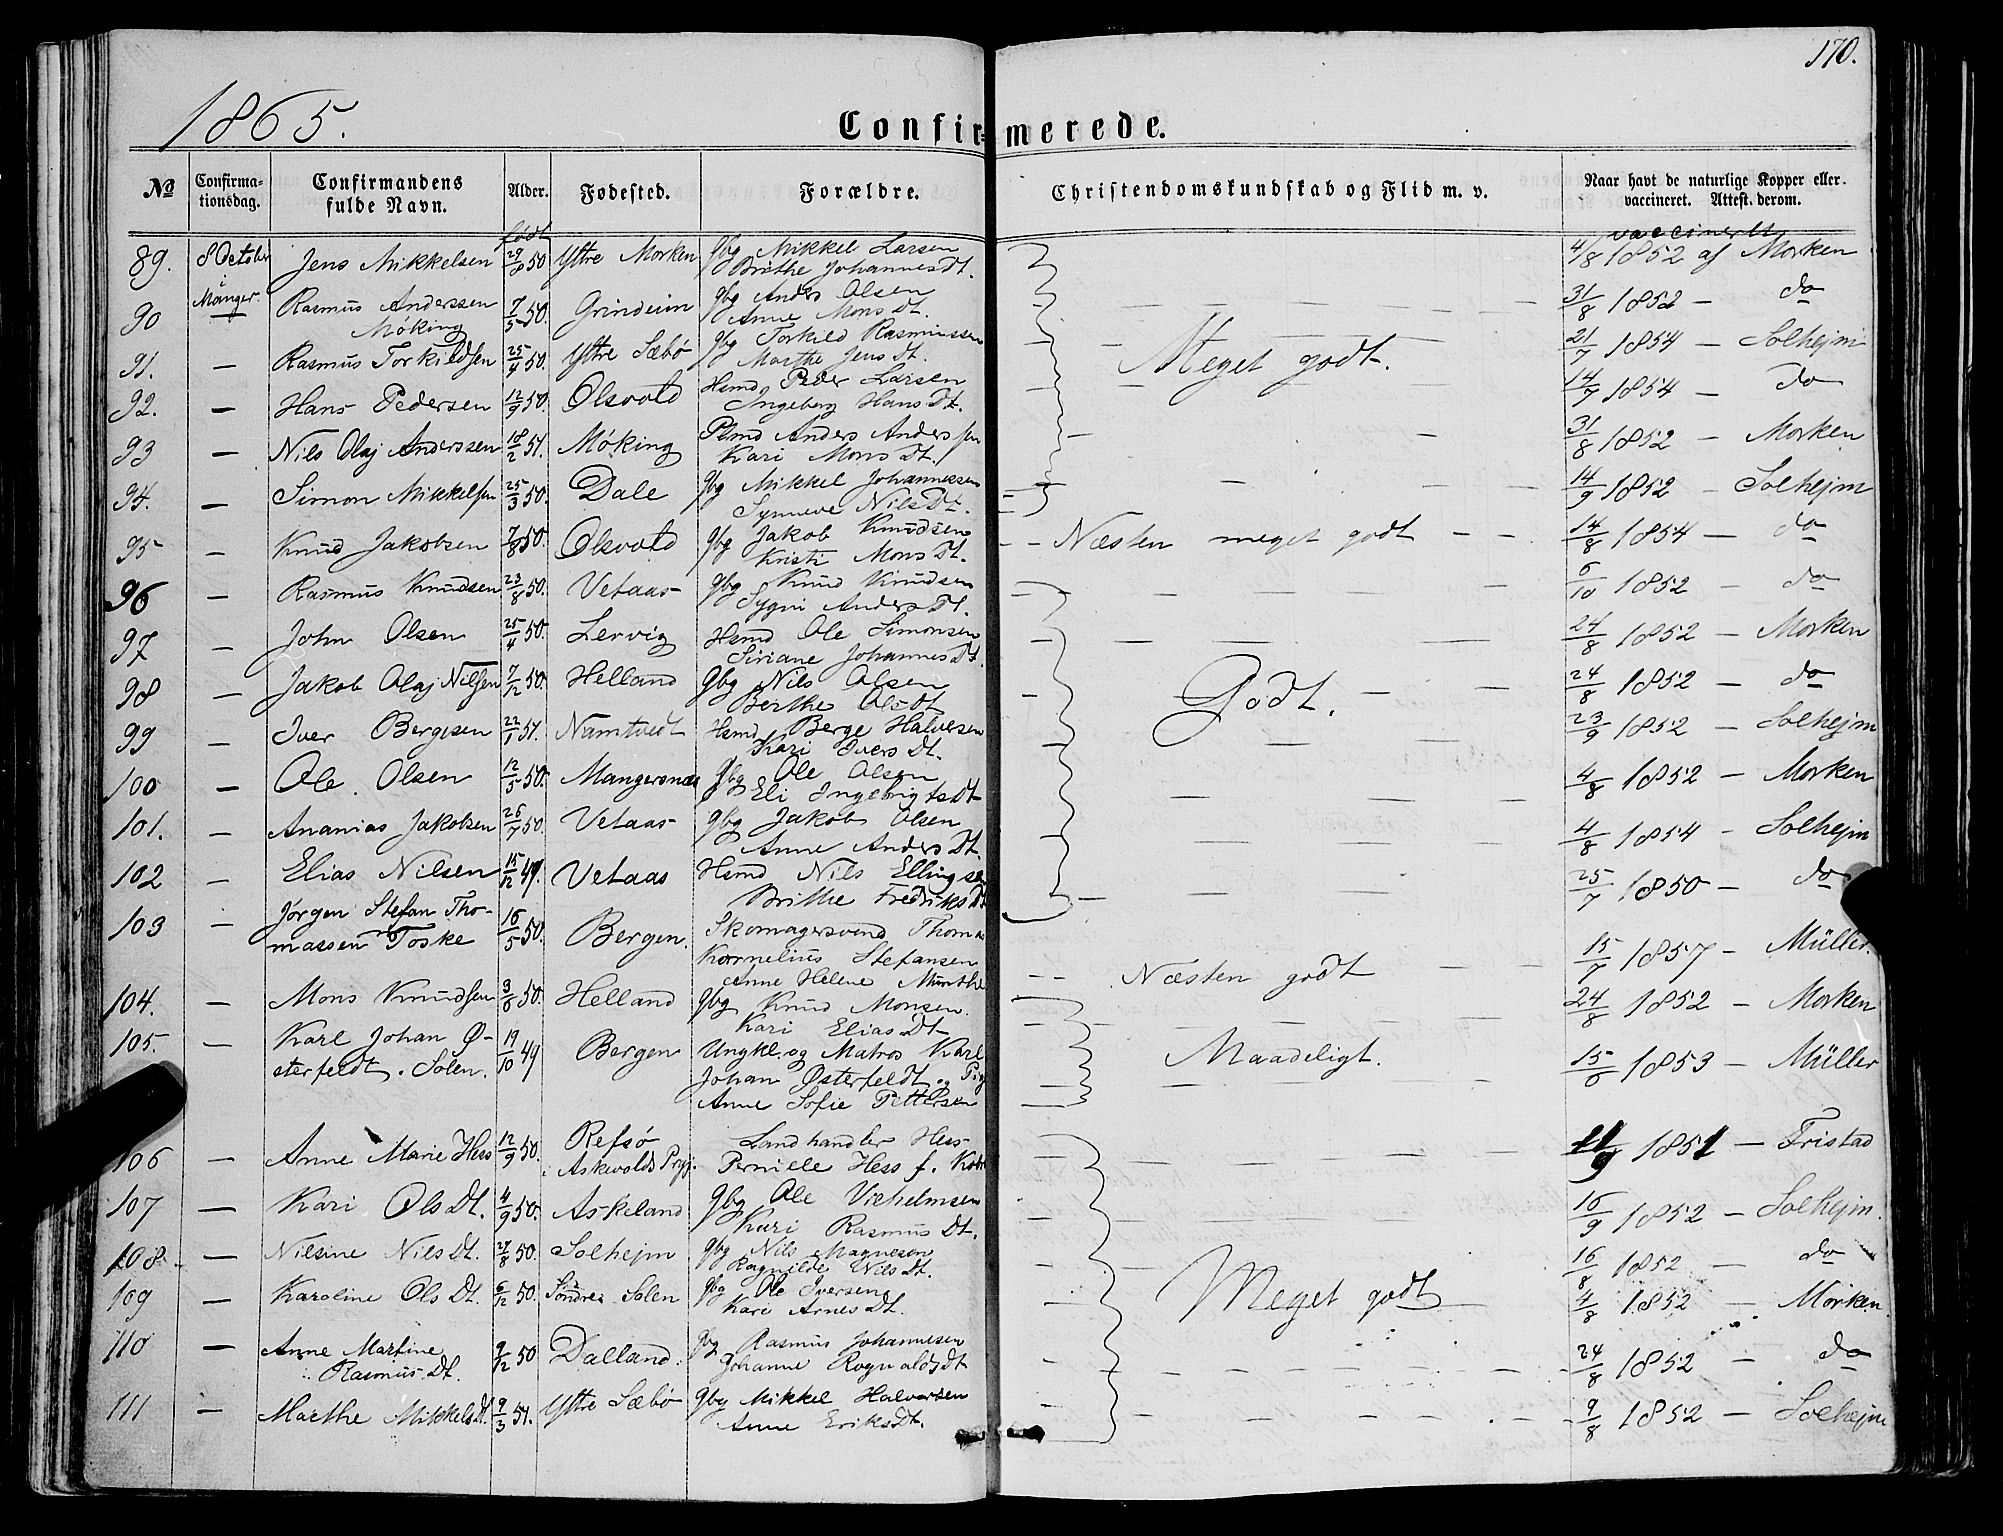 170.
1865.
Confirmerede.
№ Confirmationsdag. Confirmandens fulde Navn. Alder. Fødested. Forældre. Christendomskundskab og Flid m. v. Naar havt de naturlige Kopper eller vaccineret. Attest. derom.
født vaccineret
89. 8 October Jens Mikkelsen 29/8 50 Ytre Morken Gbg Mikkel Larsen 4/8 1852 af Morken
Brithe Johannes Dt.
90 Manger Rasmus Anderssen 7/5 50. Grindeim Gbg Anders Olsen 31/8 1852 — do
Møking Anne Mons Dt.
91. — Rasmus Torkildsen 25/4 50. Ytre Sæbø Gbg Torkild Rasmussen Meget godt. 21/7 1854 — Solhejm
Marthe Jens Dt.
92. — Hans Pedersen 12/9 50. Olsvold Hsmd Peder Larsen 14/7 1854 — do
Ingeberg Hans Dt.
93 — Nils Olaj Anderssen 18/2 51. Møking Plsmd Anders Anderssen 31/8 1852 — Morken
Kari Mons Dt.
94. — Simon Mikkelsen 25/3 50. Dale Gbg Mikkel Johannessen 14/9 1852 — Solhejm
Synneve Nils Dt.
95 — Knud Jakobsen 7/8 50. Olsvold Gbg Jakob Knudsen — Næsten meget godt — 14/8 1854 — do
Kristi Mons Dt.
96 — Rasmus Knudsen 23/8 50. Vetaas Gbg Knud Knudsen 6/10 1852 — do
Sygni Anders Dt.
97 — John Olsen 25/4 50. Lervig Hsmd Ole Simonsen 24/8 1852 — Morken
Siriane Johannes Dt.
98 — Jakob Olaj Nilssen 7/12 50. Helland Gbg Nils Olsen Godt. 24/8 1852 — do
Berthe Ols Dt
99 — Iver Bergesen 22/1 51. Namtvedt Hsmd Berge Halversen 23/9 1852 — Solhejm
Kari Ivers Dt.
100 — Ole Olsen 12/5 50. Mangersnæs Gbg Ole Olsen 4/8 1852 — Morken
Eli Ingebrigts Dt
101. — Ananias Jakobsen 26/7 50. Vetaas Gbg Jakob Olsen 4/8 1854 — Solhejm
Anne Anders Dt.
102 — Elias Nilsen 15/12 49. Vetaas Hsmd Nils Ellingsen 25/7 1850 — do
Brithe Fredriks Dt
103 — Jørgen Stefan Tho- 16/5 50. Bergen. Skomagersvend Thomas 15/7 1857 — Müller.
massen Toske Kornelius Stefansen — Næsten godt
Anne Helene Munthe
104. — Mons Knudsen 3/6 50. Helland Gbg Knud Monsen. 24/8 1852 — Morken
Kari Elias Dt
105. — Karl Johan Ø- 19/10 49 Bergen Ungkl. og Matros Karl Maadeligt. 15/6 1853 — Müller
sterfeldt. Solen. Johan Østerfeldt og Pig
Anne Sofie Pettersen
106 — Anne Marie Hess 12/9 50. Refsø Landhandler Hess 11/9 1851 — Fristad
i Askevolds Prgj. Perniele Hess f.
107 — Kari Ols Dt. 4/9 50. Askeland Gbg Ole Vilhelmsen 16/9 1852 — Solhejm.
Kari Rasmus Dt.
108. — Nilsine Nils Dt. 27/8 50. Solhejm Gbg Nils Magnesen 16/8 1852 — do
Ragnilde Nils Dt.
109 — Karoline Ols Dt. 6/12 50. Søndre Solen Gbg Ole Iversen Meget godt 4/8 1852 — Morken
Kari Arnes Dt.
110 — Anne Martine 9/12 50 Dalland. Gbg Rasmus Johannesen 24/8 1852 — do
Rasmus Dt. Johanne Rognalds Dt
111 — Marthe Mikkels Dt. 9/3 51. Ytre Sæbø Gbg Mikkel Halversen 9/8 1852 — Solhejm
Anne Eriks Dt.